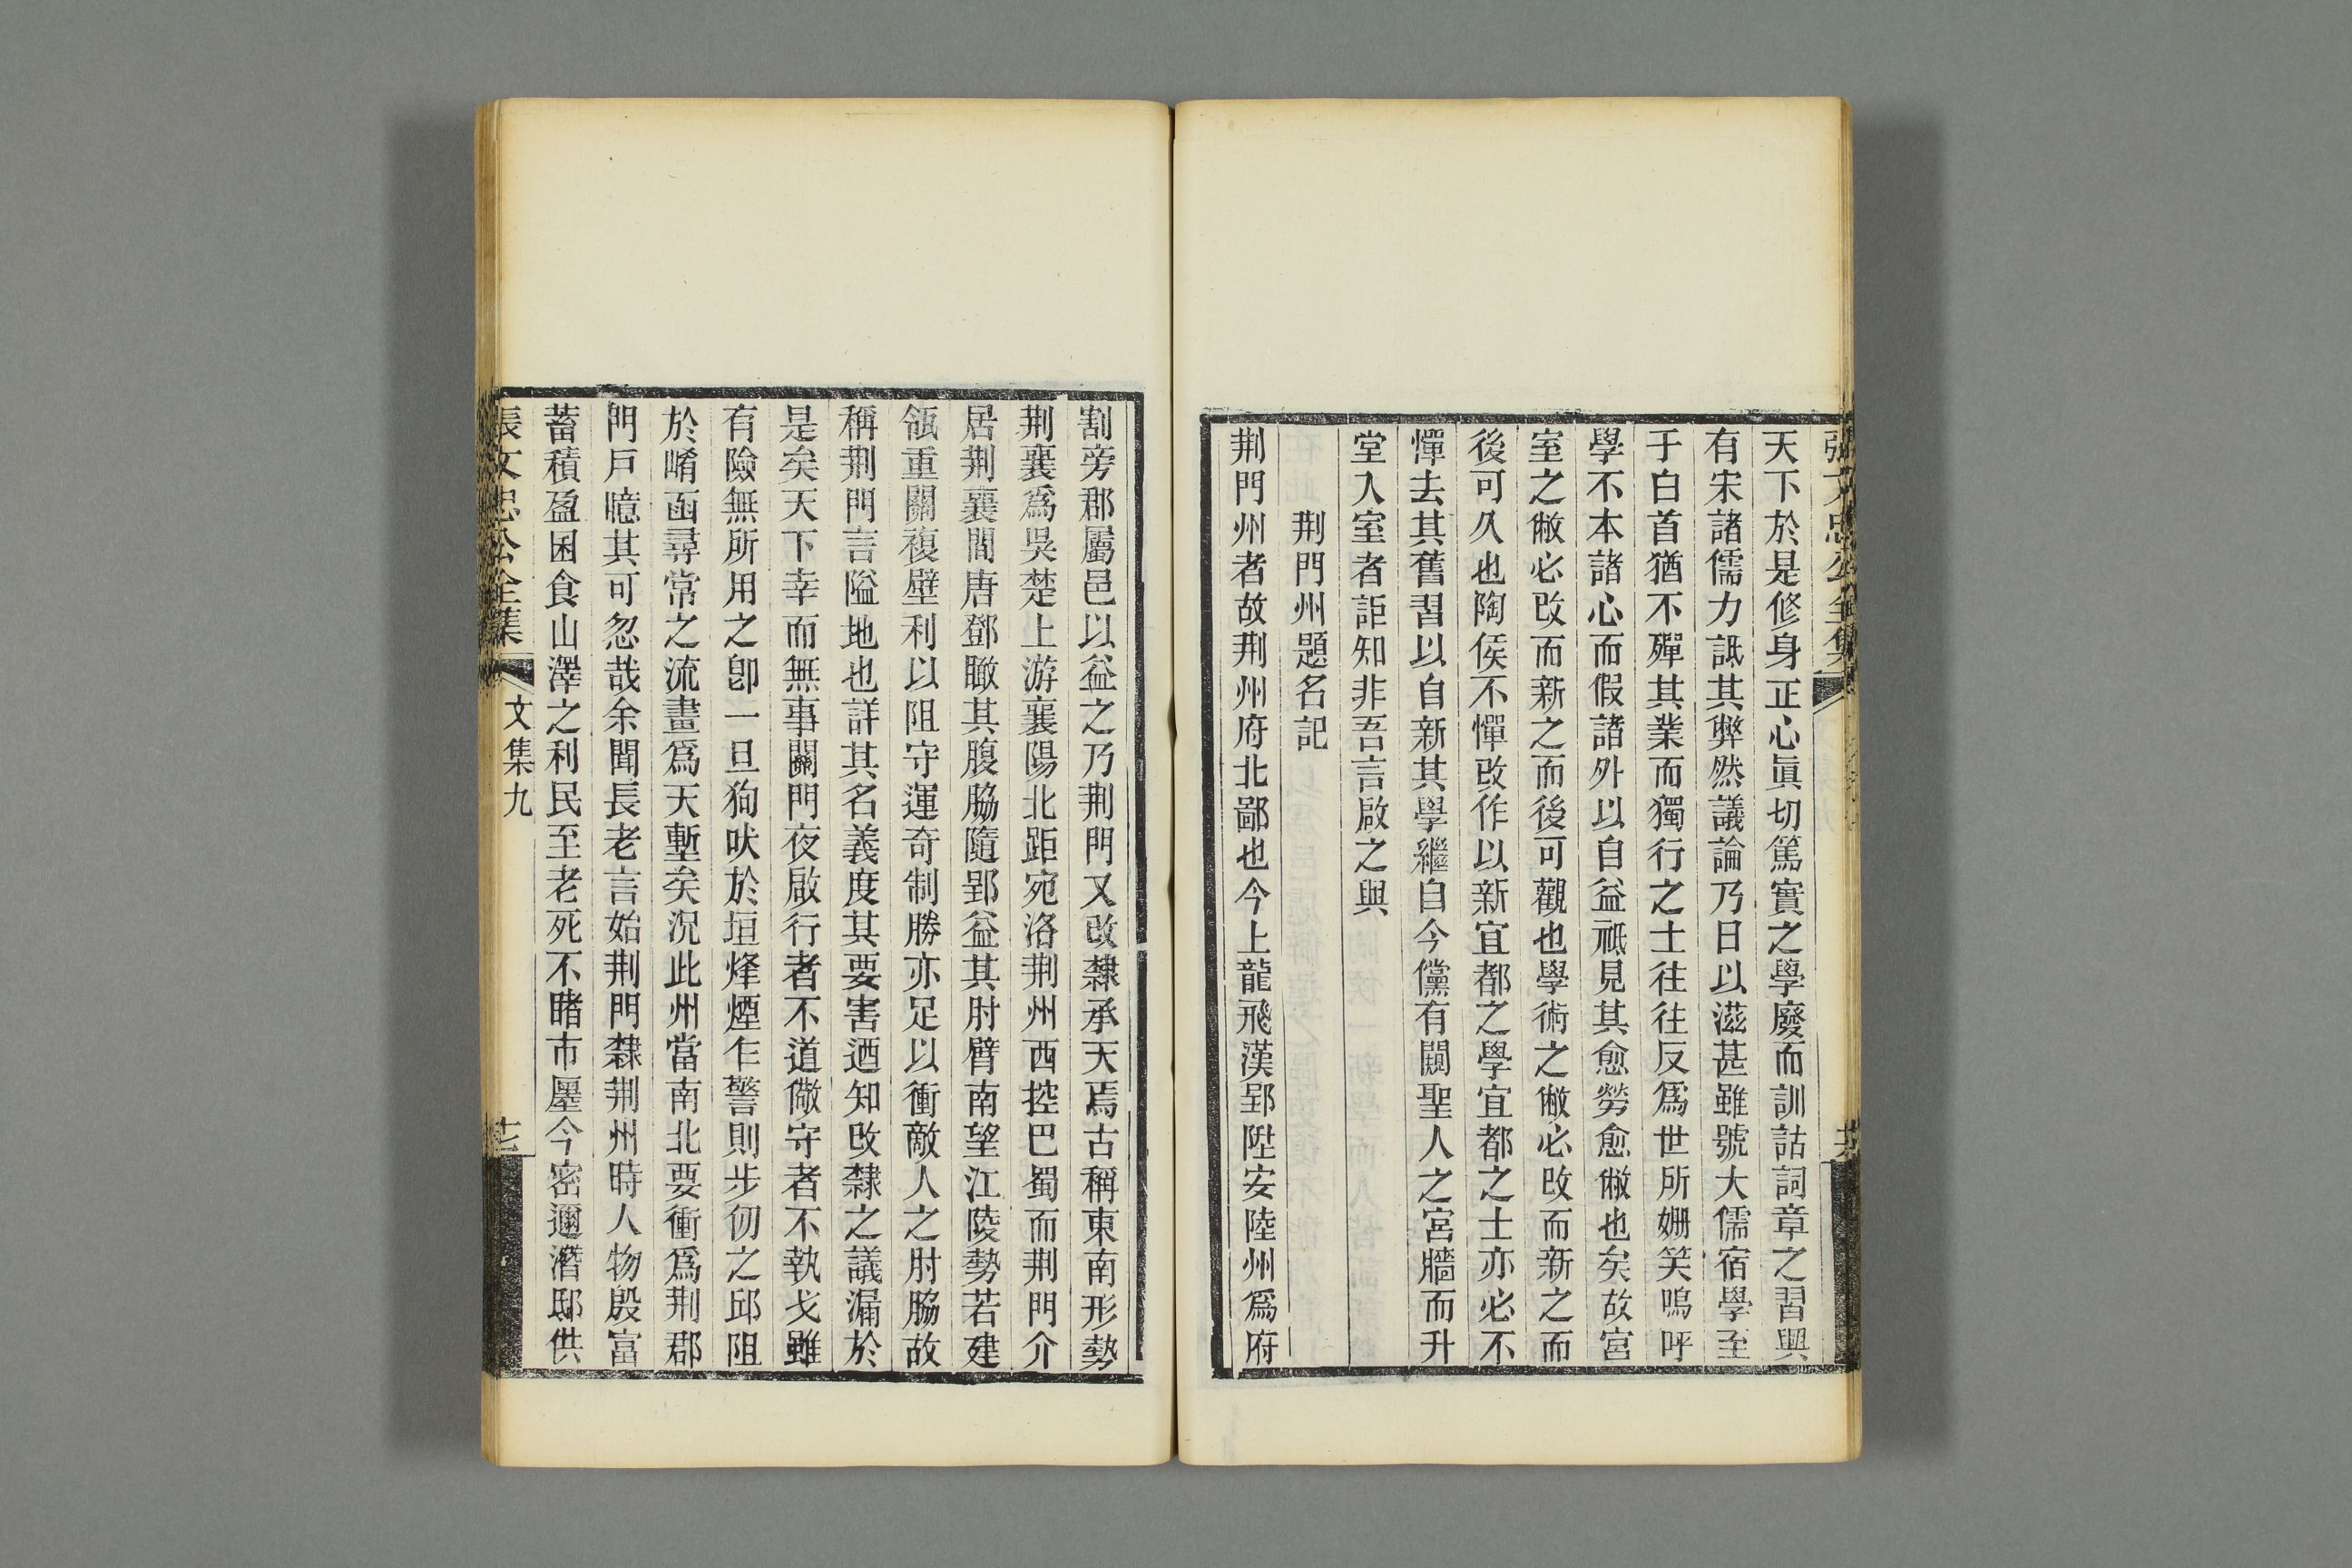 張文忠公全集
天下於是修身正心眞切篤實之學廢而訓詁詞章之習興
有宋諸儒力詆其弊然議論乃日以滋甚雖號大儒宿學至
于白首猶不殫其業而獨行之士往往反爲世所姍笑嗚呼
學不本諸心而假諸外以自益祗見其愈勞愈敝也矣故宮
室之敝必改而新之而後可觀也學術之敝必改而新之而
後可久也陶侯不憚改作以新宜都之學宜都之士亦必不
憚去其舊習以自新其學繼自今儻有闚聖人之宮牆而升
堂入室者詎知非吾言啟之與
荆門州題名記
荆門州者故荆州府北鄙也今上龍飛漢郢陞安陸州爲府
割旁郡屬邑以益之乃荆門又改隸承天焉古稱東南形勢
荆襄爲吳楚上游襄陽北距宛洛荆州西控巴蜀而荆門介
居荆襄間唐鄧瞰其腹脇隨郢益其肘臂南望江陵勢若建
瓴重關複壁利以阻守運奇制勝亦足以衝敵人之肘脇故
稱荆門言隘地也詳其名義度其要害迺知改隸之議漏於
是矣天下幸而無事關門夜啟行者不道儆守者不執戈雖
有險無所用之卽一旦狗吠於垣烽煙乍警則步仞之邱阻
於崤函尋常之流畫爲天塹矣況此州當南北要衝爲荆郡
門戶噫其可忽哉余聞長老言始荆門隸荆州時人物殷富
蓄積盈囷食山澤之利民至老死不睹市廛今密邇潛邸供
張文忠公全集
文集九